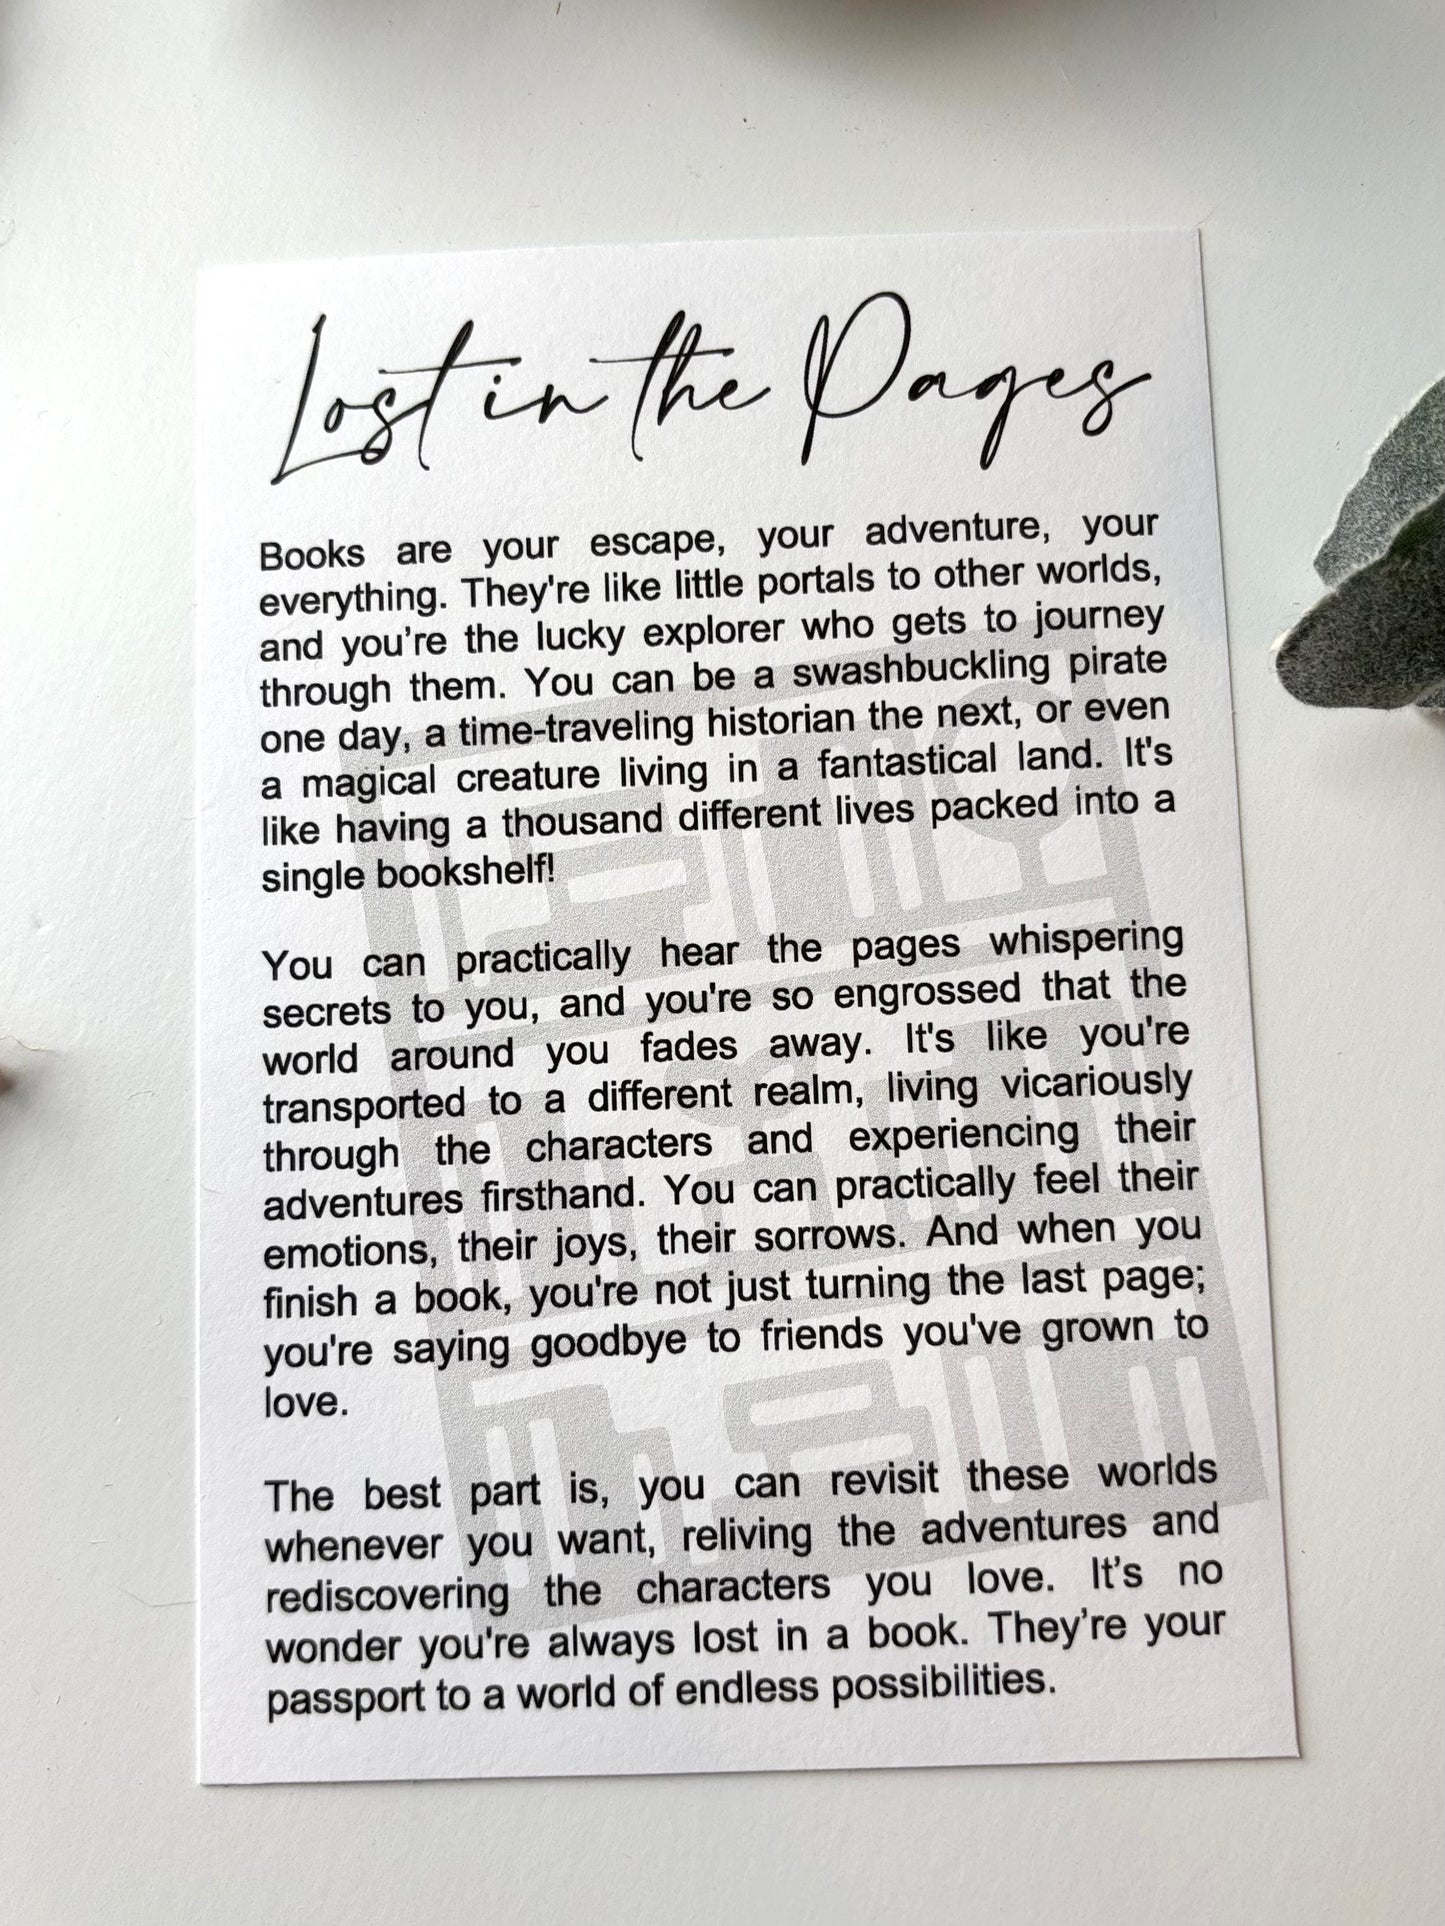 Lost in the Pages
Books are your escape, your adventure, your
everything. They're like little portals to other worlds,
and you’re the lucky explorer who gets to journey
through them. You can be a swashbuckling pirate
one day, a time-traveling historian the next, or even
a magical creature living in a fantastical land. It's
like having a thousand different lives packed into a
single bookshelf!
You can practically hear the pages whispering
secrets to you, and you're so engrossed that the
world around you fades away. It's like you're
transported to a different realm, living vicariously
through the characters and experiencing their
adventures firsthand. You can practically feel their
emotions, their joys, their sorrows. And when you
finish a book, you're not just turning the last page;
you're saying goodbye to friends you've grown to
love.
The best part is, you can revisit these worlds
whenever you want, reliving the adventures and
rediscovering the characters you love. It’s no
wonder you're always lost in a book. They’re your
passport to a world of endless possibilities.